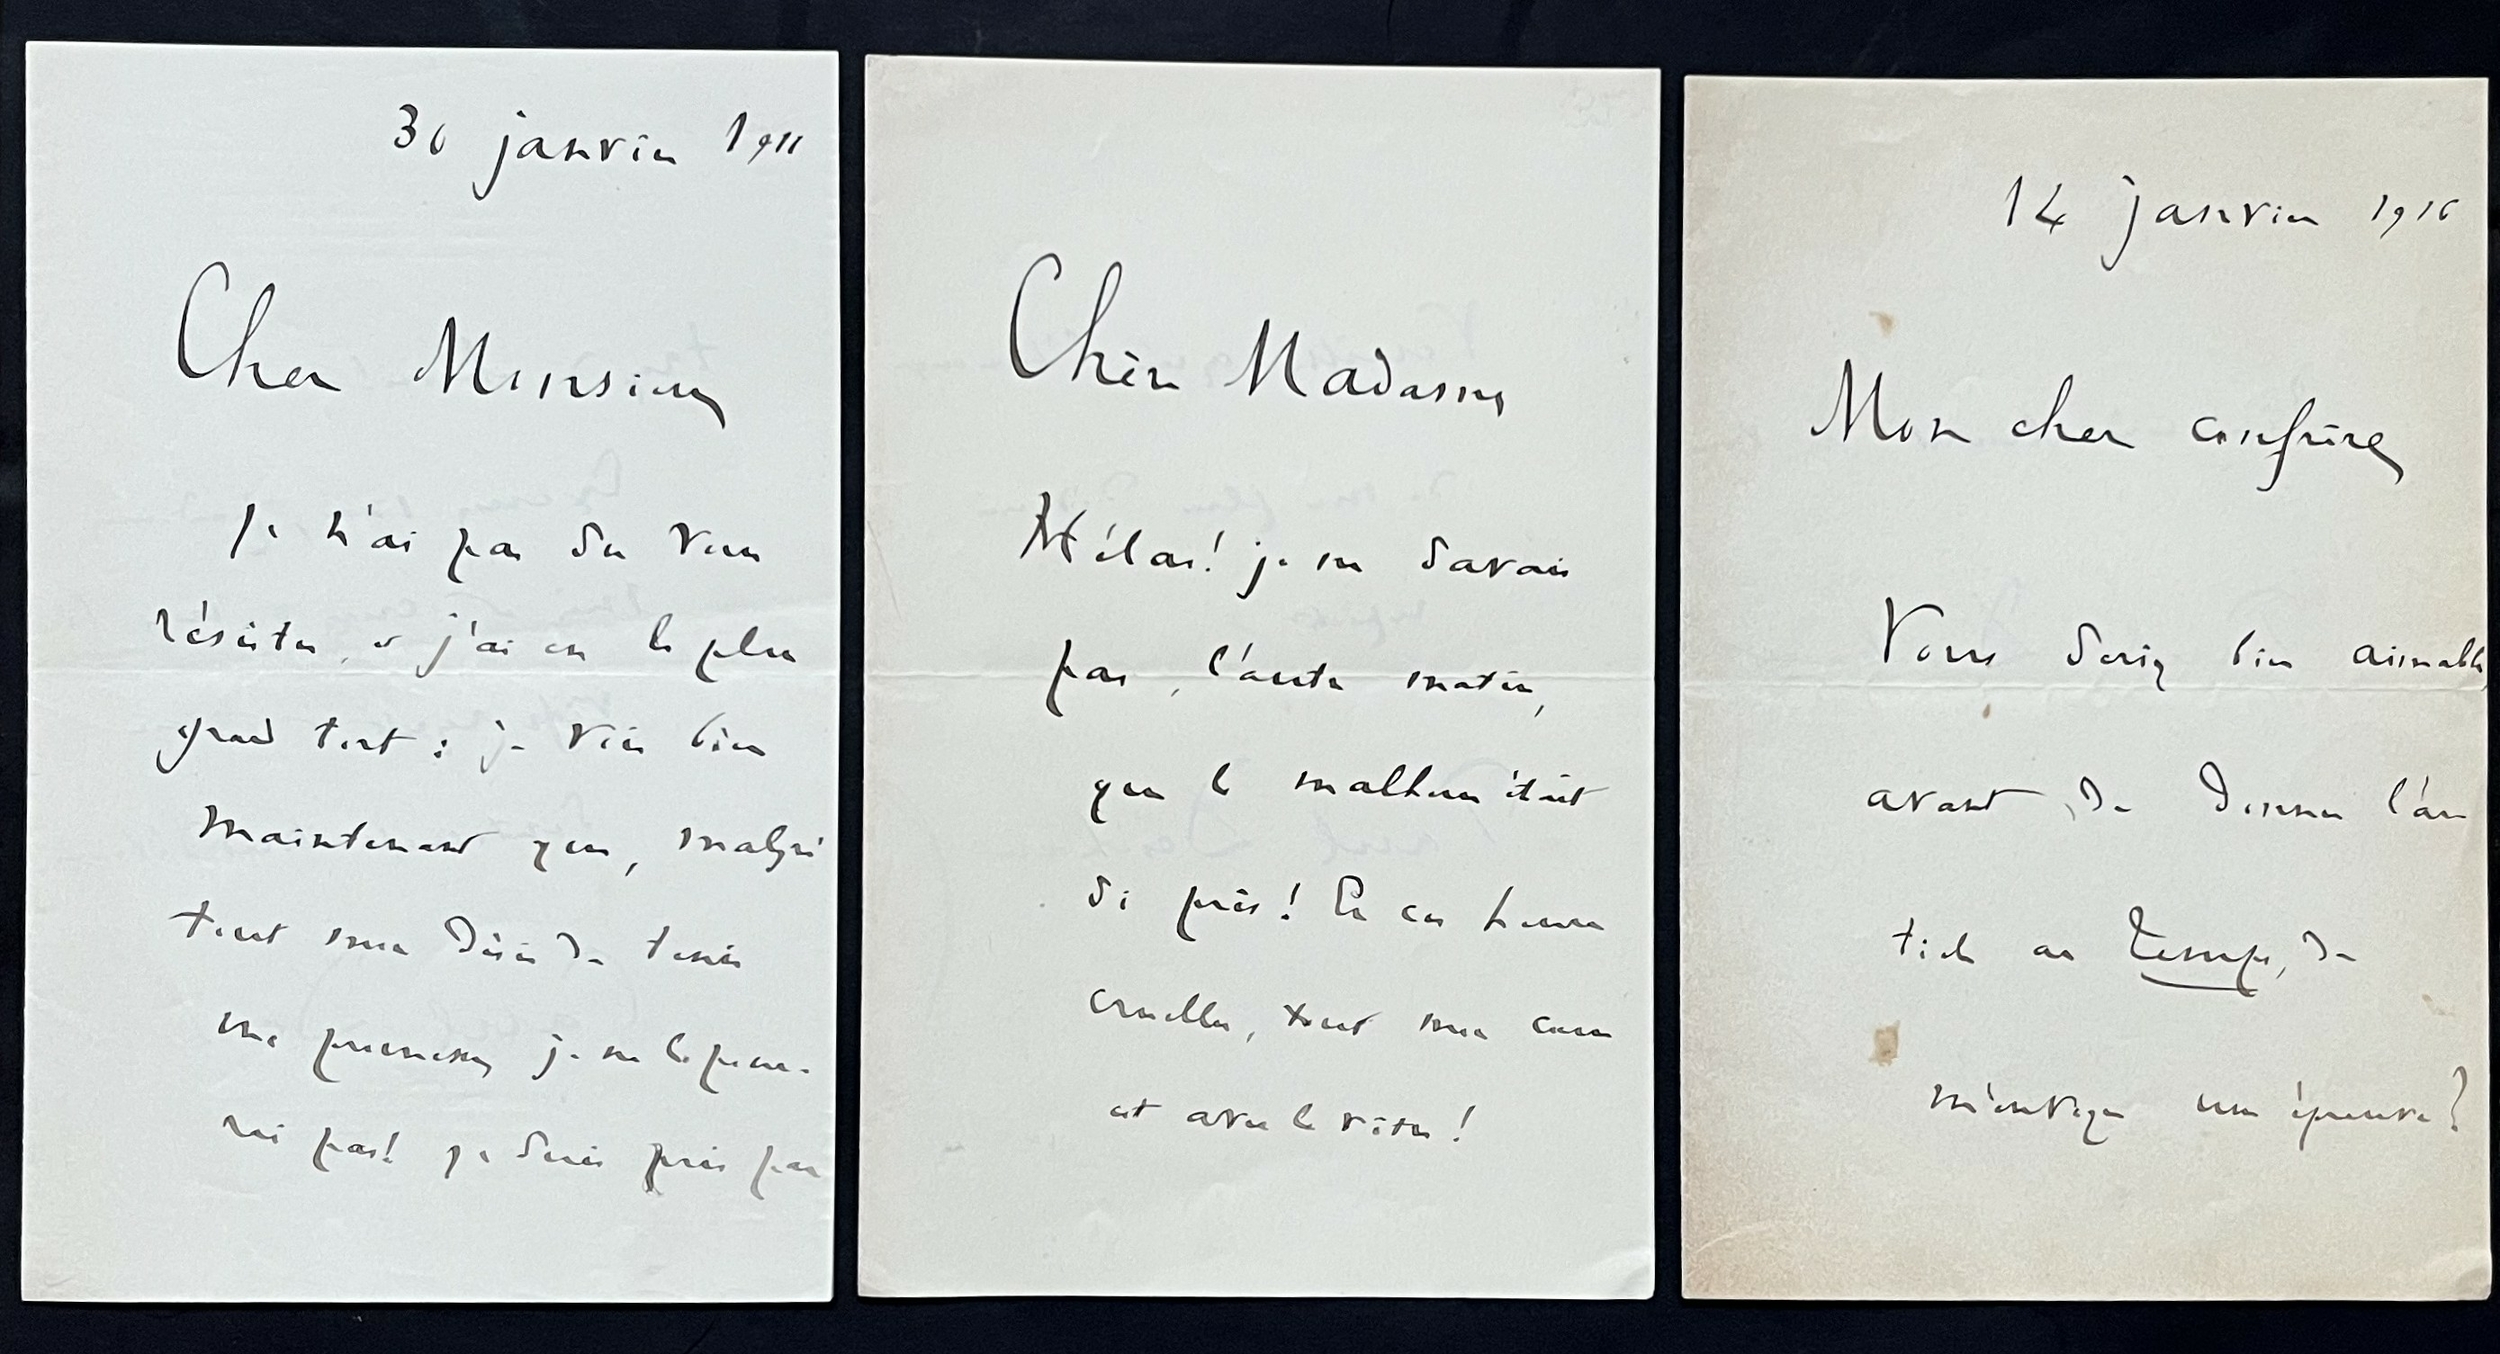 30 janvier 1911
Cher Monsieur
Je n'ai pas su vous
résister, et j'ai eu le plus
grand tort : je vois bien
maintenant que, malgré
tout mon désir de tenir
ma promesse, je ne le pour-
rai pas! Je suis pris par
Chère Madame
Hélas! je ne savais
pas, l'autre matin,
que le malheur était
si près! En ces heures
cruelles, tout mon cœur
est avec le vôtre!
14 janvier 1916
Mon cher confrère
Vous seriez bien aimable,
avant de donner l'ar-
ticle au Temps, de
m'envoyer une épreuve?